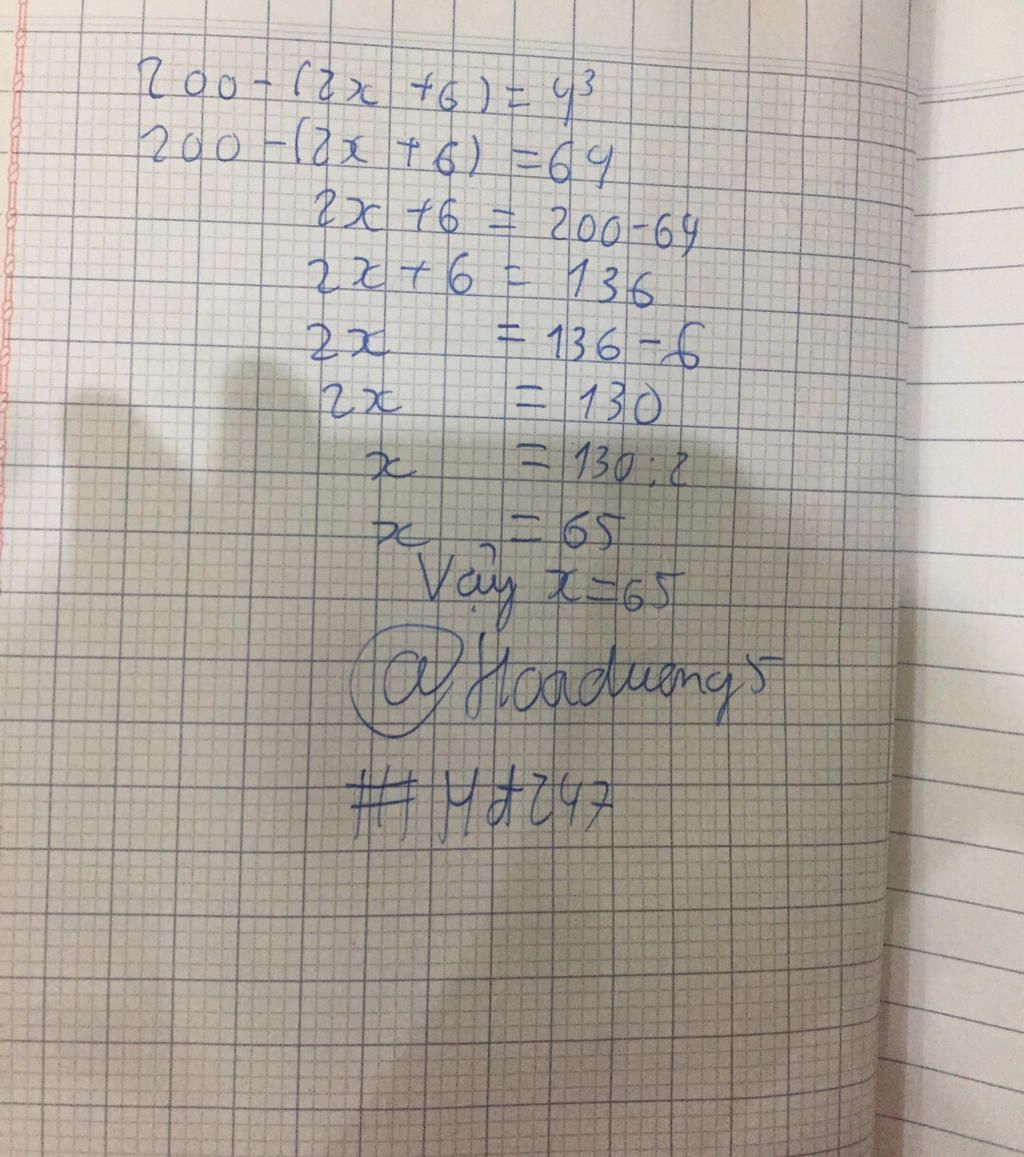 200-(2x +6)=4³
200-(2x +6) =64
2x +6 = 200-64
2x + 6 = 136
2x = 136-6
2x = 130
x = 130:2
x = 65
Vậy x=65
@ Hoaduong5
# Hd247